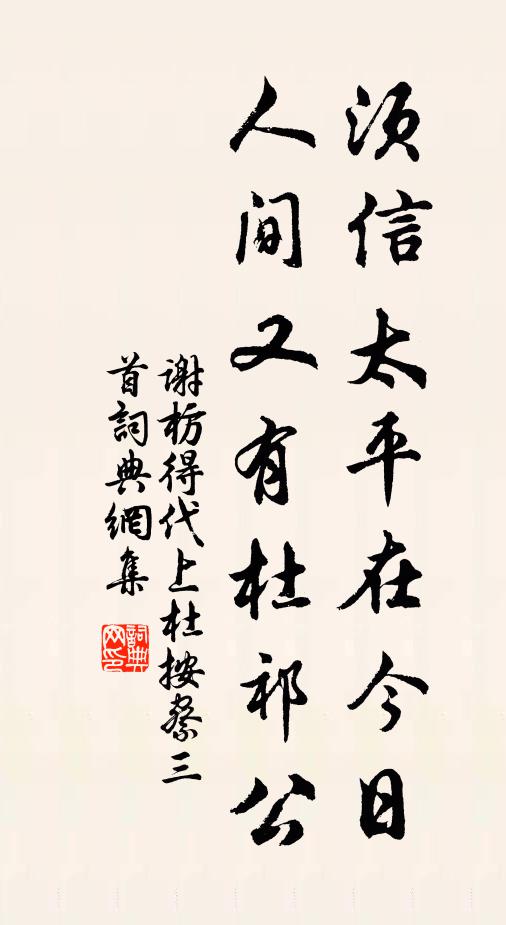 须信太平在今日
人间又有杜祁公
谢枋得代上杜按察三
首詞典網集
詞典
网印